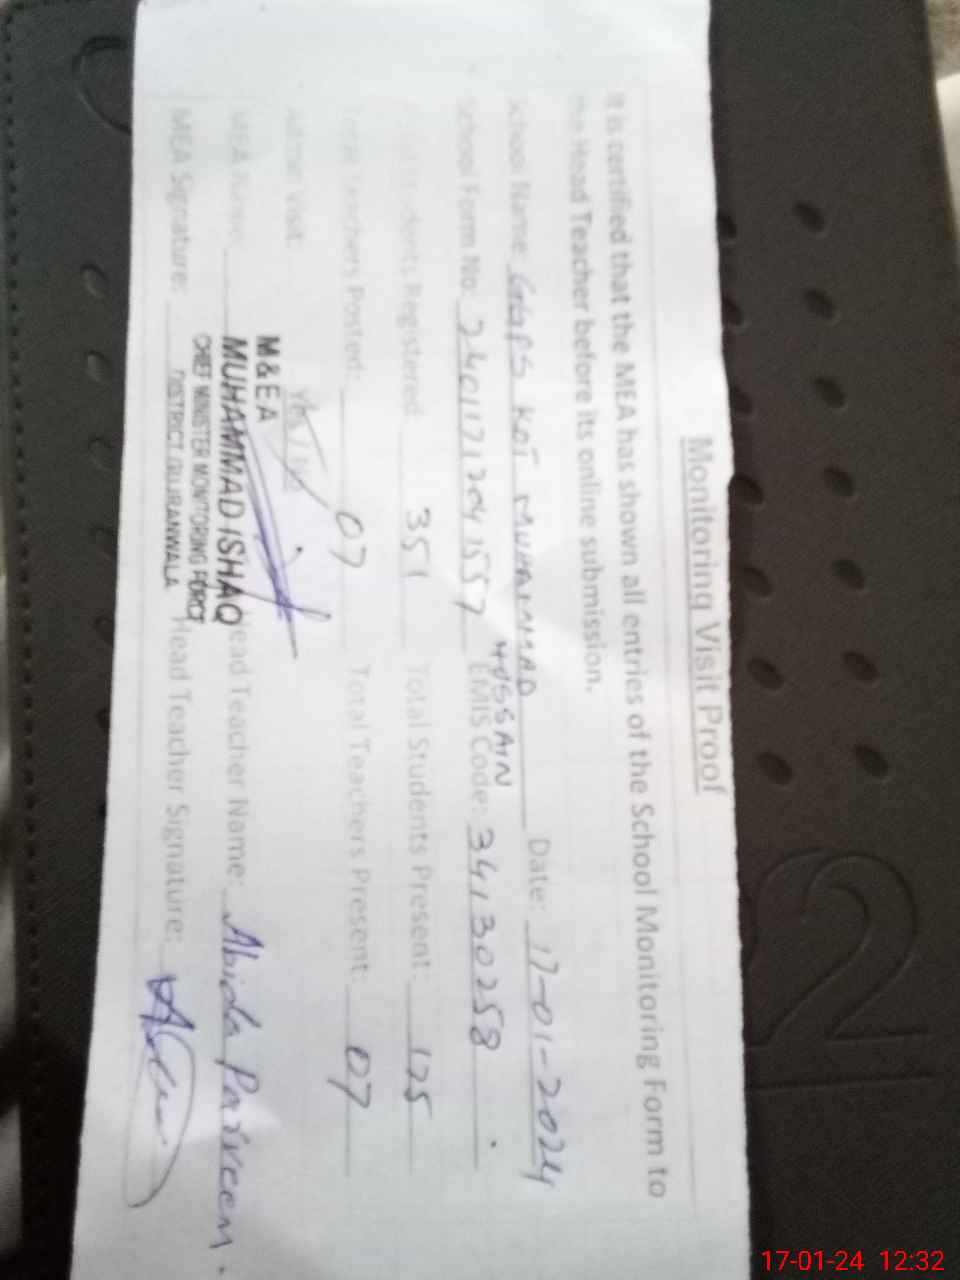 Monitoring Visit Proof
It is certified that the MEA has shown all entries of the School Monitoring Form to
the Head Teacher before its online submission.
School Name: GGPS KOT MUHAMMAD HUSSAIN Date: 17-01-2024
School Form No: EMIS Code: 34130258
Students Registered 351 Total Students Present: 175
Total Teachers Posted: 07 Total Teachers Present: 07
Admin Visit:
M&EA
MEA Name: MUHAMMAD ISHAQ Head Teacher Name: Abida Parveen.
CHIEF MINISTER MONITORING FORCE
MEA Signature: DISTRICT GUJRANWALA Head Teacher Signature:
17-01-24 12:32